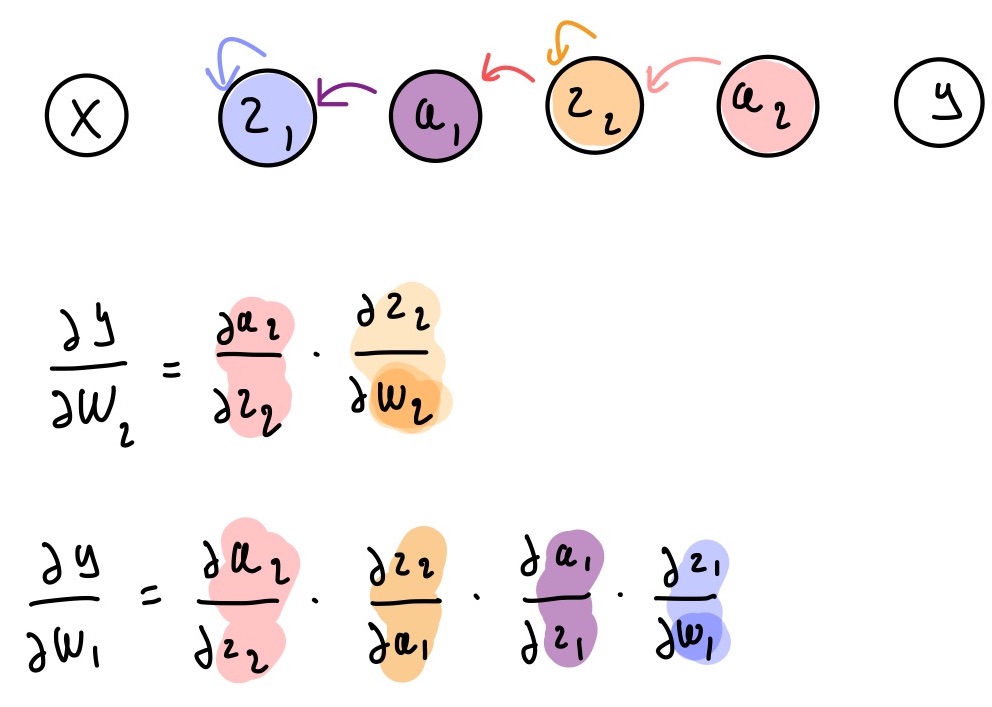 x z₁ a₁ z₂ a₂ y
∂y/∂W₂ = ∂a₂/∂z₂ · ∂z₂/∂W₂
∂y/∂W₁ = ∂a₂/∂z₂ · ∂z₂/∂a₁ · ∂a₁/∂z₁ · ∂z₁/∂W₁